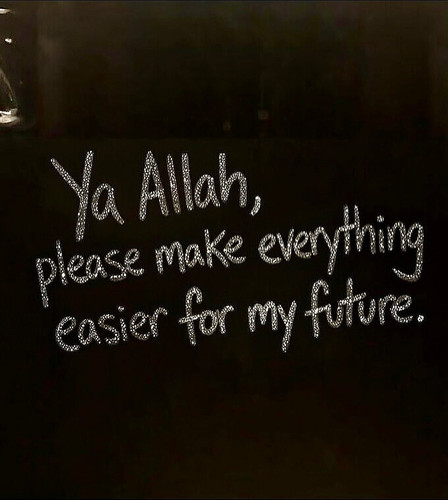 Ya Allah,
please make everything
easier for my future.